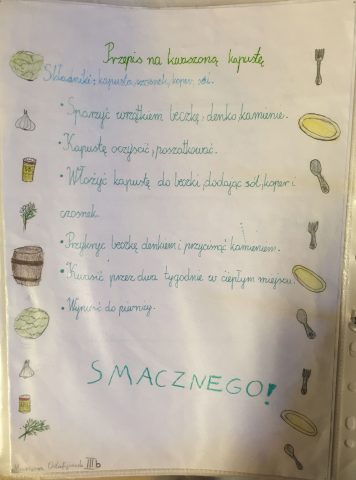 Przepis na kwaszoną kapustę
Składniki: kapusta, czosnek, koper, sól.
• Sparzyć wrzątkiem beczkę, denko, kamienie.
• Kapustę oczyścić, poszatkować.
• Włożyć kapustę do beczki, dodając sól, koper i
czosnek.
• Przykryć beczkę denkiem i przycisnąć kamieniem.
• Kwasić przez dwa tygodnie w ciepłym miejscu.
• Wynieść do piwnicy.
SMACZNEGO!
III b